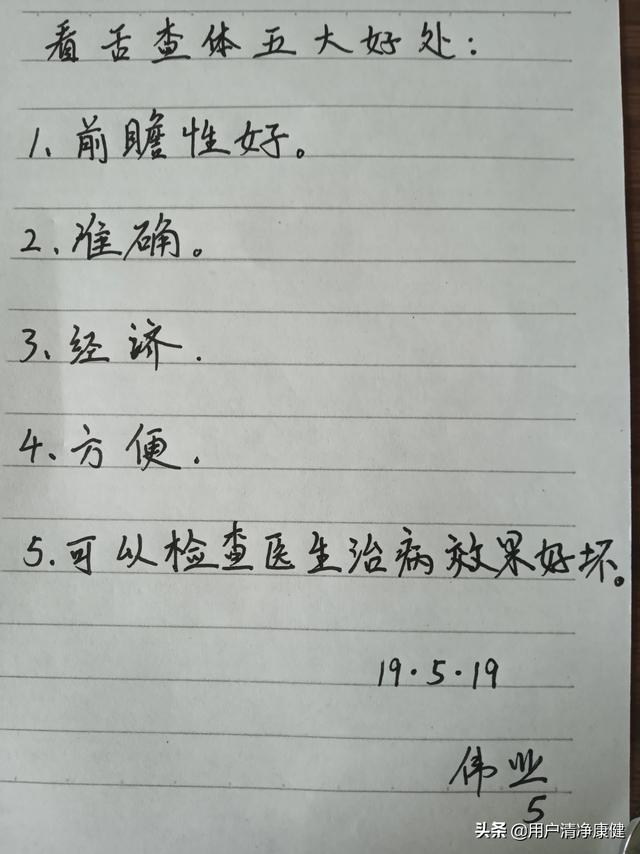 看舌查体五大好处：
1、前瞻性好。
2、准确。
3、经济.
4、方便.
5.可以检查医生治病效果好坏。
19.5.19
伟业
5
头条 @用户清净康健